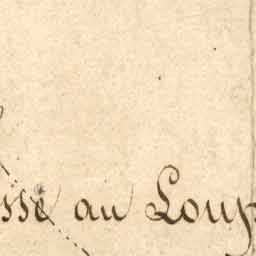 sse au Loup